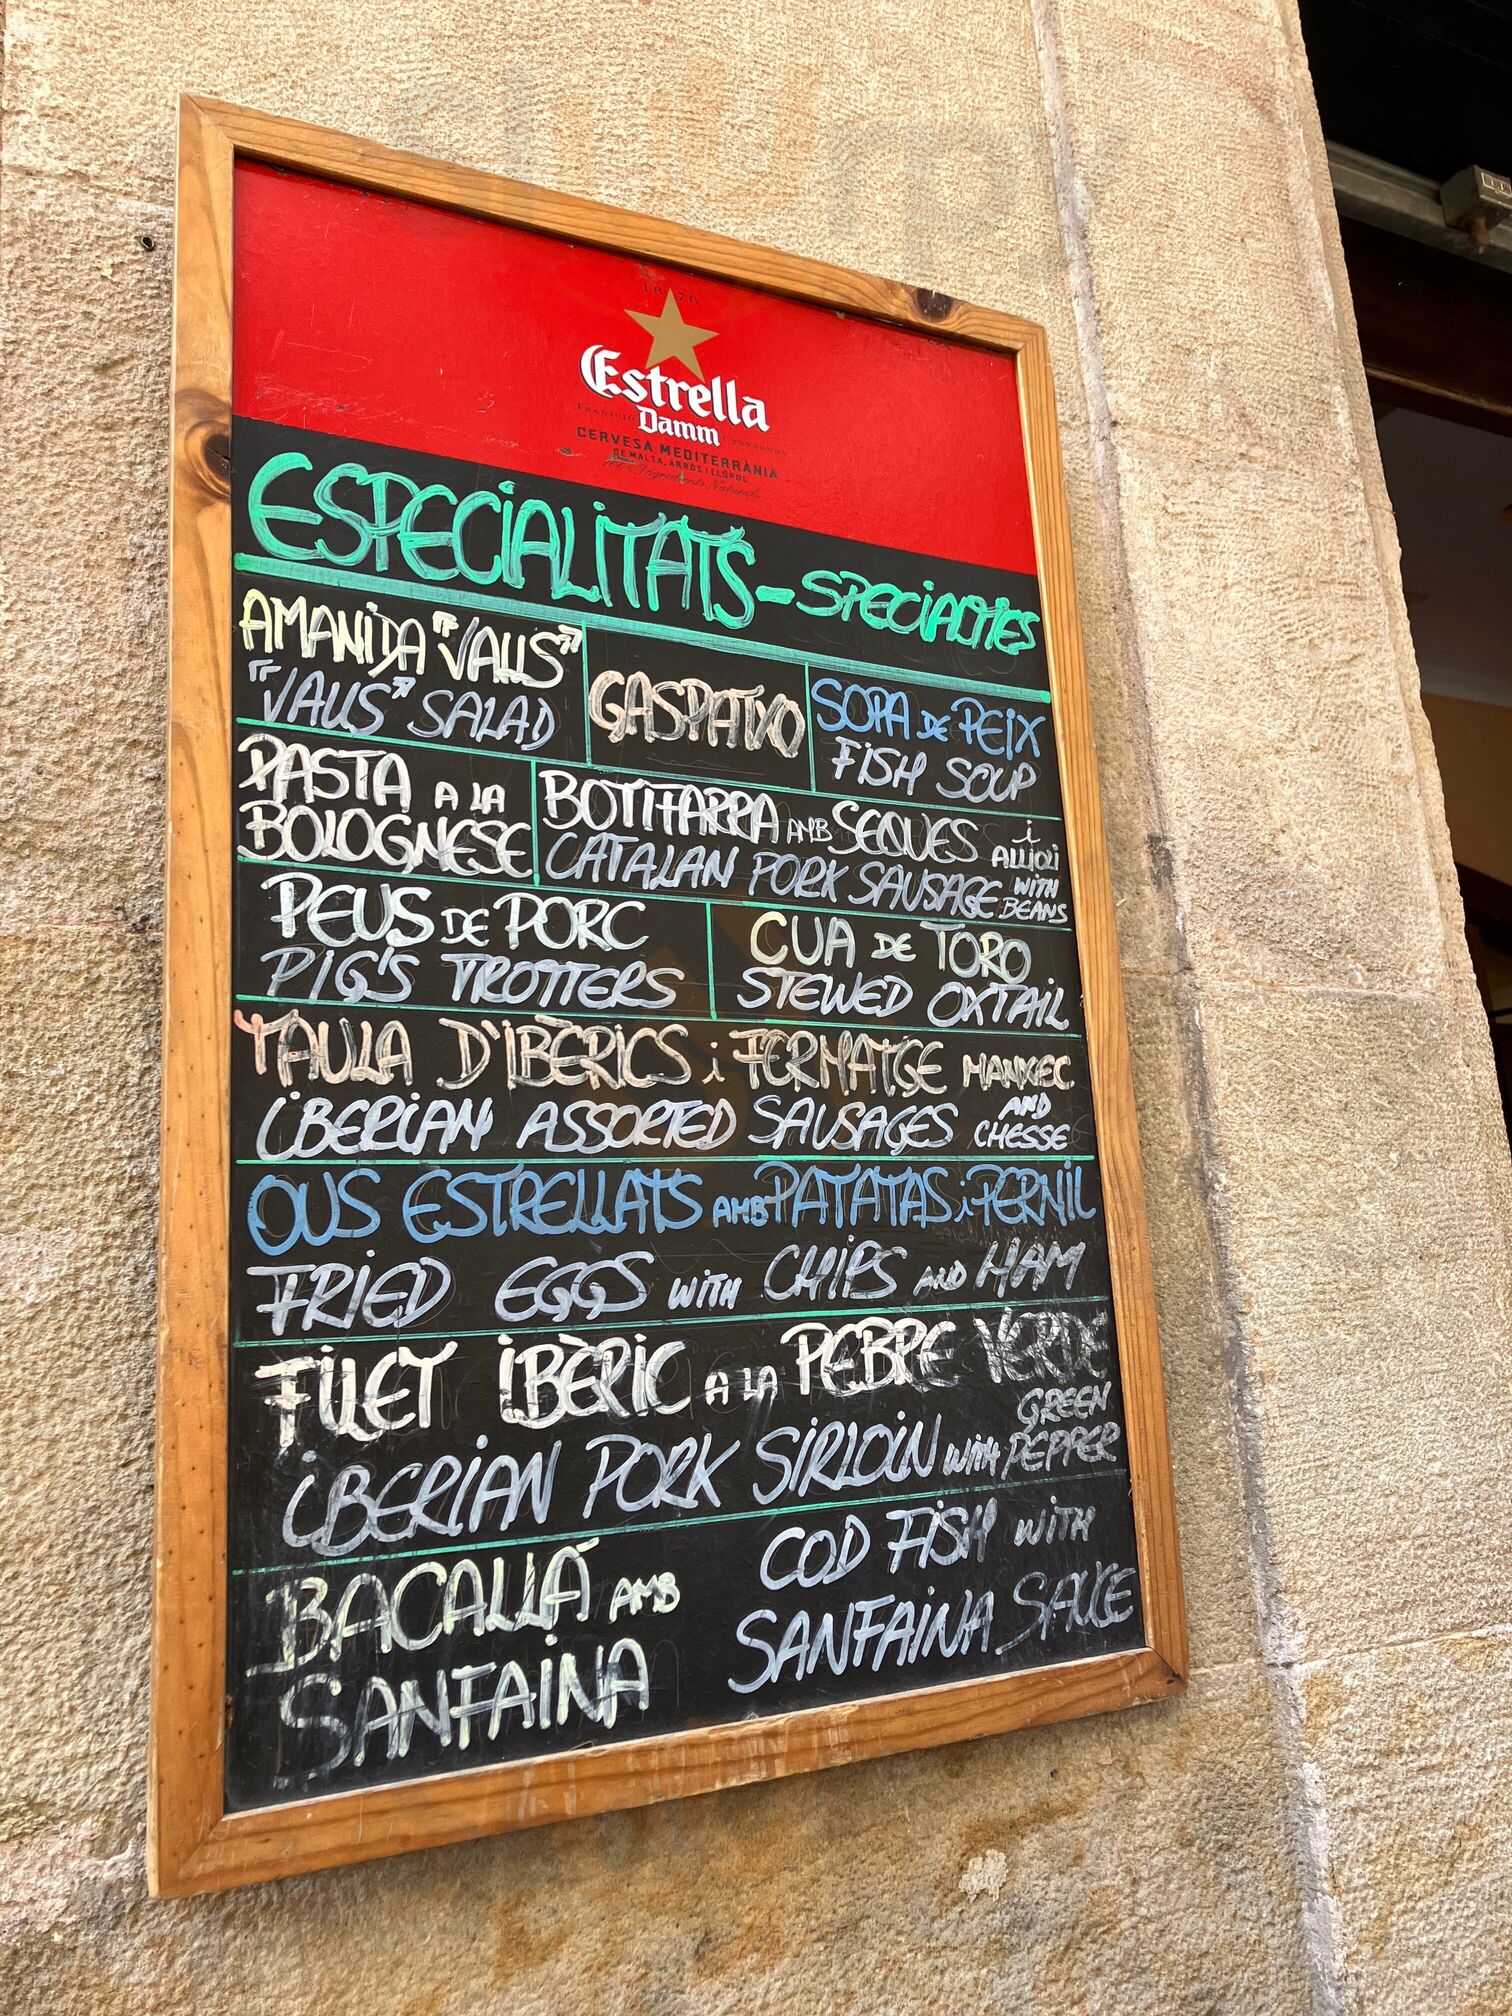 1876
Estrella
Damm
TRADICIÓ CERVESERA
CERVESA MEDITERRÀNIA
DE MALTA, ARRÒS I LLÚPOL
100% Ingredients Naturals
ESPECIALITATS - SPECIALTIES
AMANIDA "VALLS"
"VALLS" SALAD
GASPATXO
SOPA DE PEIX
FISH SOUP
PASTA A LA
BOLOGNESE
BOTIFARRA AMB SEQUES i ALLIOLI
CATALAN PORK SAUSAGE WITH BEANS
PEUS DE PORC
PIG'S TROTTERS
CUA DE TORO
STEWED OXTAIL
TAULA D'IBÈRICS i FORMATGE MANXEC
IBERIAN ASSORTED SAUSAGES AND CHESSE
OUS ESTRELLATS AMB PATATAS i PERNIL
FRIED EGGS WITH CHIPS AND HAM
FILET IBÈRIC A LA PEBRE VERDE
IBERIAN PORK SIRLOIN WITH GREEN PEPPER
BACALLÀ AMB
SANFAINA
COD FISH WITH
SANFAINA SAUCE